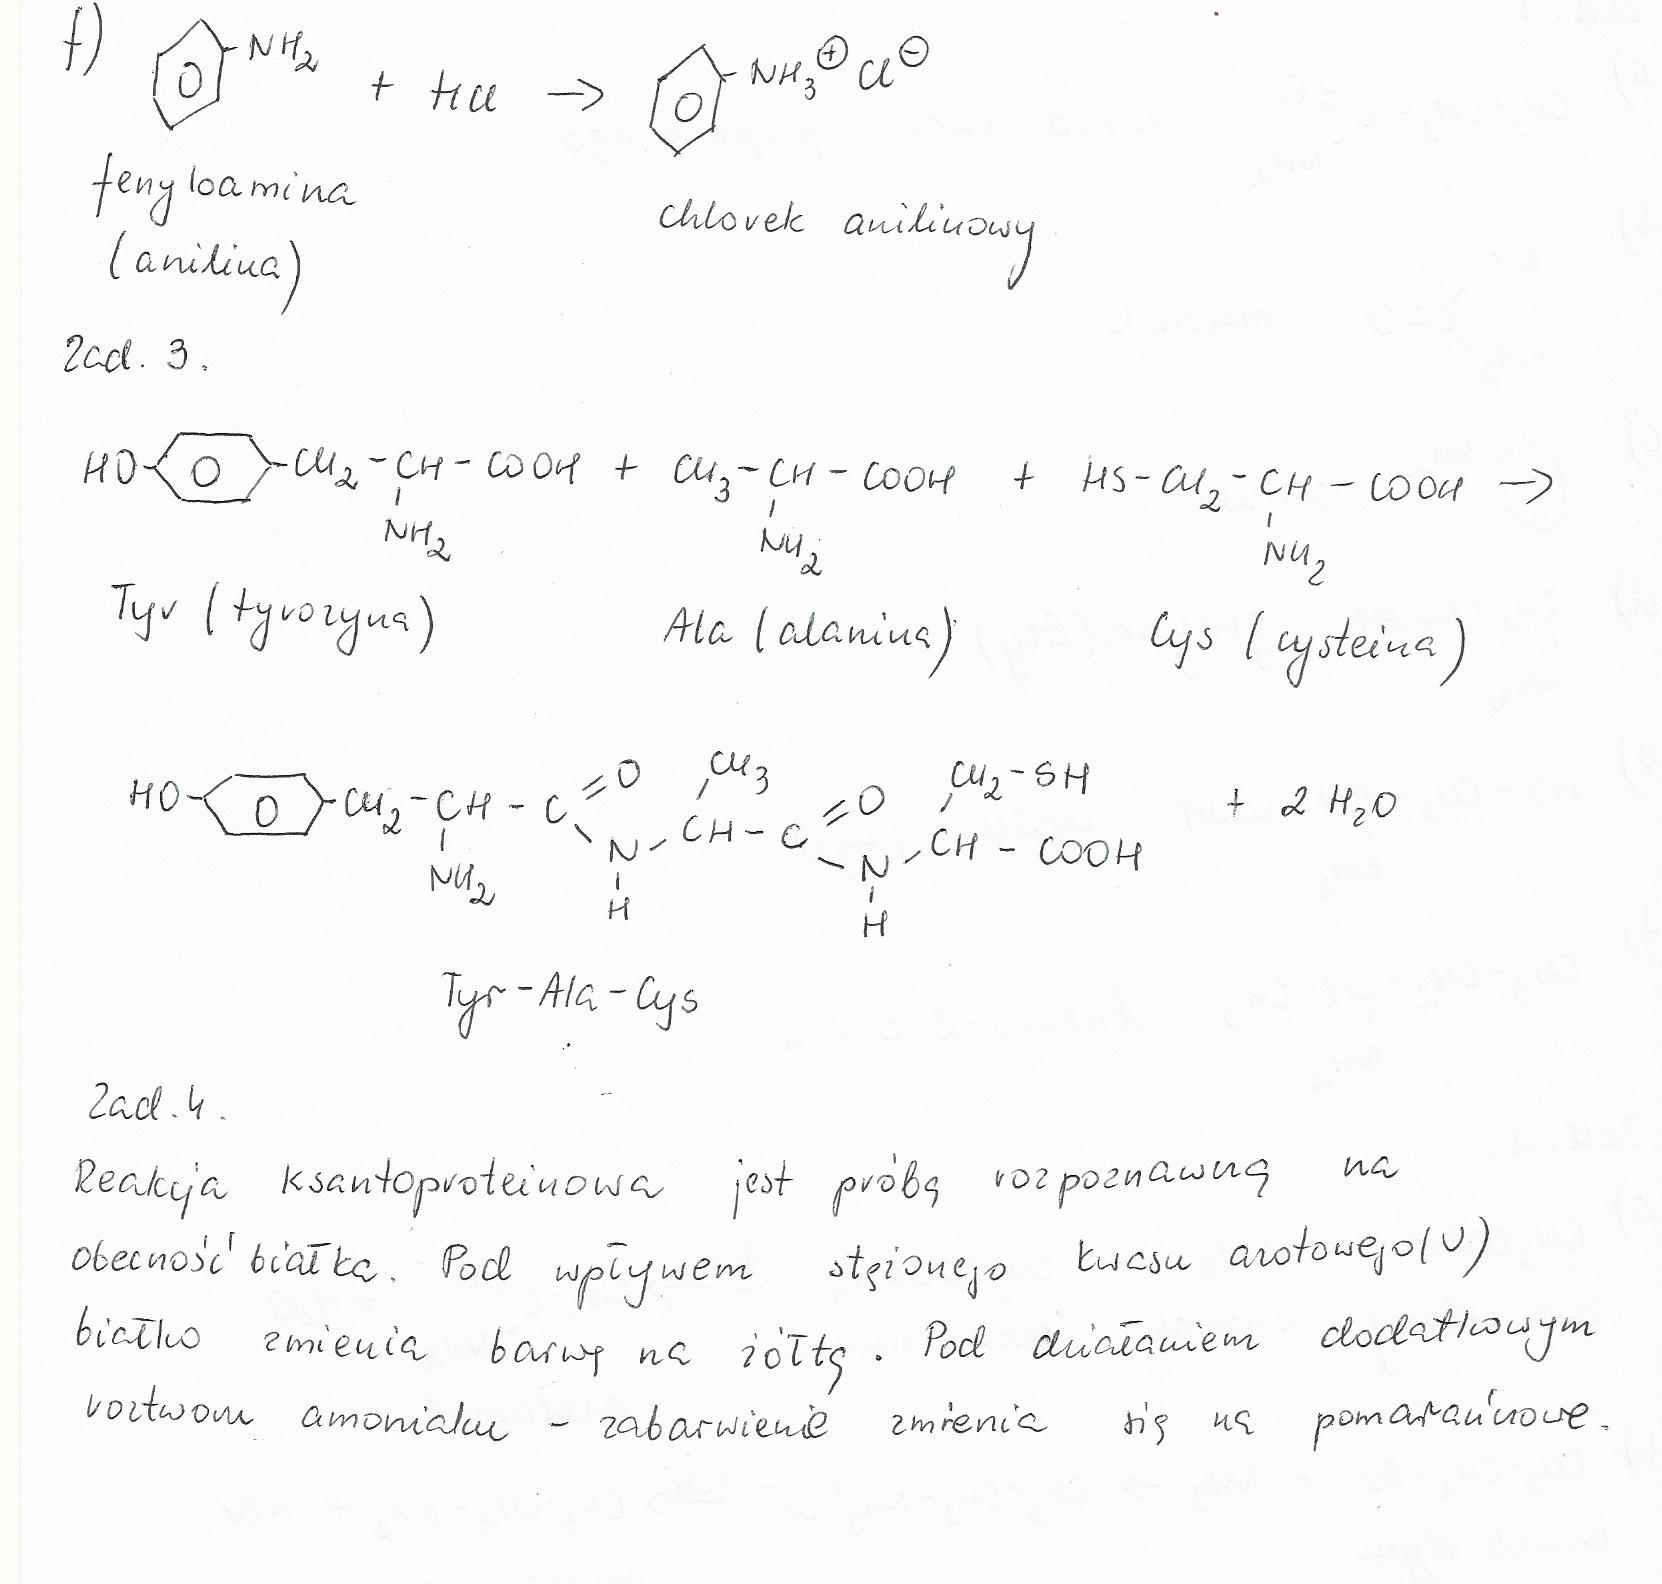 f) NH2 + HCl → NH3⊕ Cl⊖
fenyloamina
(anilina)
chlorek anilinowy
Zad. 3.
HO- -CH2-CH-COOH + CH3-CH-COOH + HS-CH2-CH-COOH →
NH2 NH2 NH2
Tyr (tyrozyna) Ala (alanina) Cys (cysteina)
HO- -CH2-CH-C=O CH3 CH-C=O CH2-SH CH-COOH + 2 H2O
NH2 N N
H H
Tyr-Ala-Cys
Zad. 4.
Reakcja ksantoproteinowa jest próbą rozpoznawczą na
obecność białka. Pod wpływem stężonego kwasu azotowego(V)
białko zmienia barwę na żółtą. Pod działaniem dodatkowym
roztworu amoniaku - zabarwienie zmienia się na pomarańczowe.